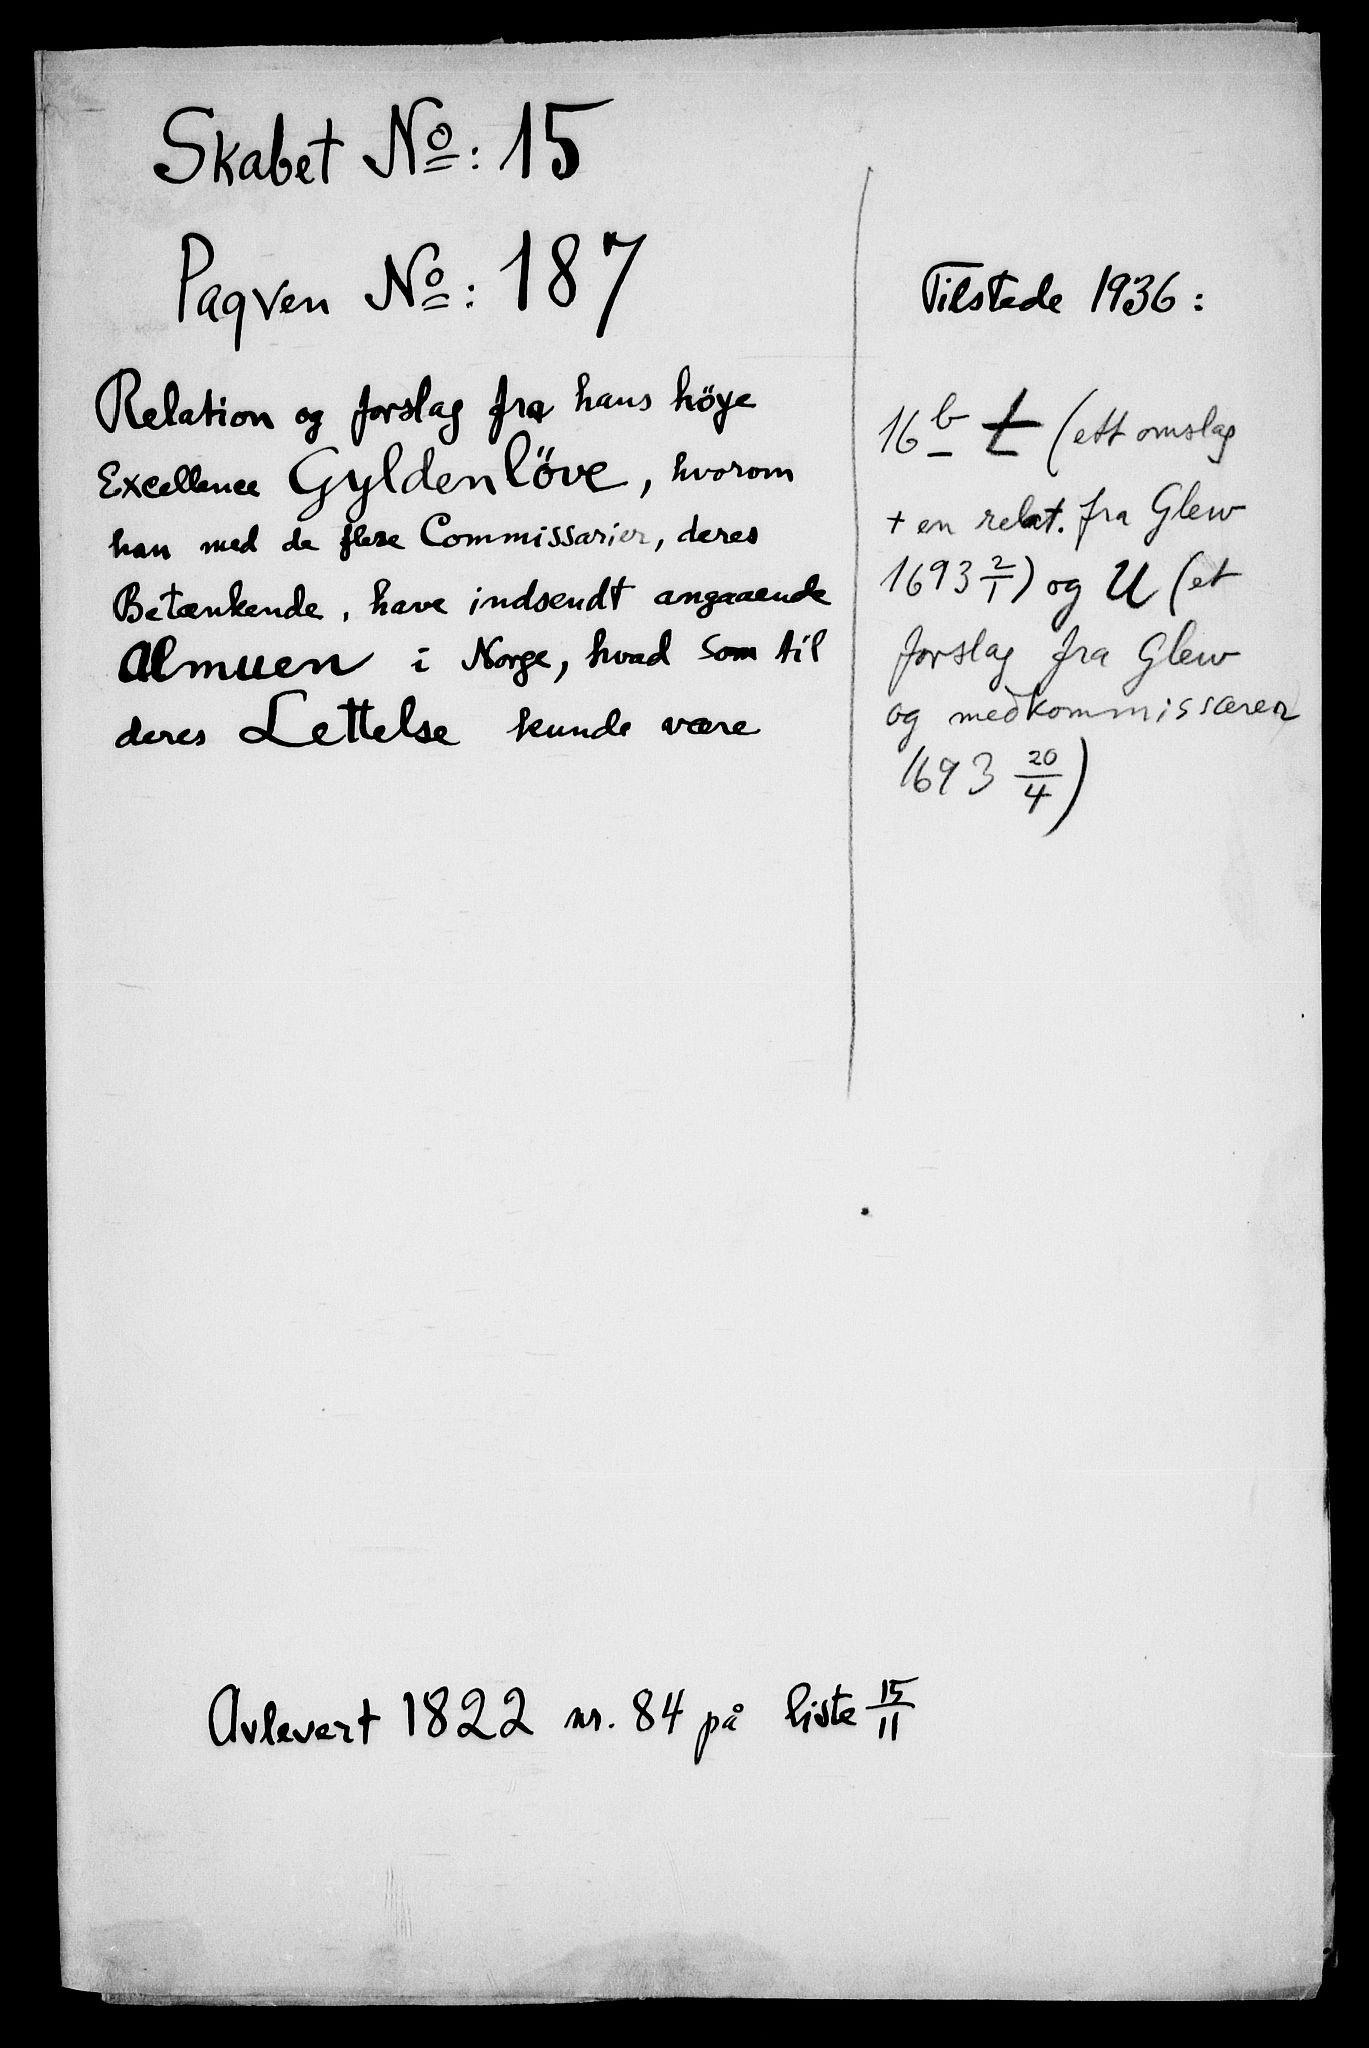 Skabet No: 15
Paqven No: 187
Relation og forslag fra hans höye
Excellence Gyldenlöve, hvorom
han med de flere Commissarier, deres
Betænkende, have indsendt angaaende
Almuen i Norge, hvad som til
deres Lettelse kunde være
Tilstede 1936:
16 b t (ett omslag
+ en relat. fra Glew
1693 2/1) og U (et
forslag fra Glew
og medkommissærer
1693 20/4)
Avlevert 1822 nr. 84 på liste 15/11